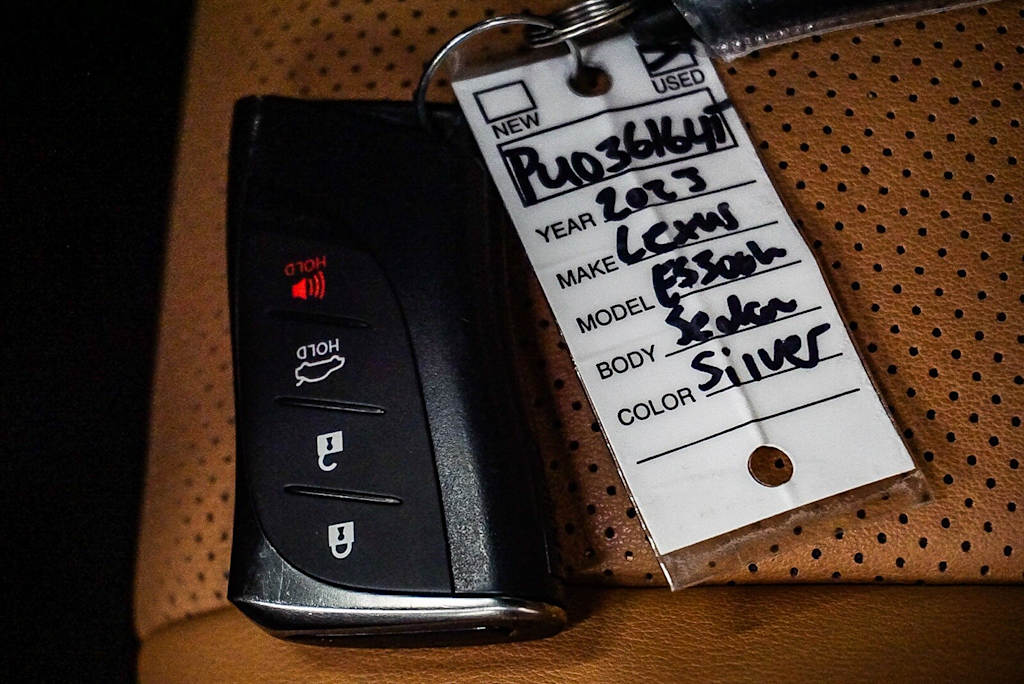 NEW
USED
PU036164T
YEAR 2023
MAKE Lexus
MODEL ES300h
BODY Sedan
COLOR Silver
HOLD
HOLD